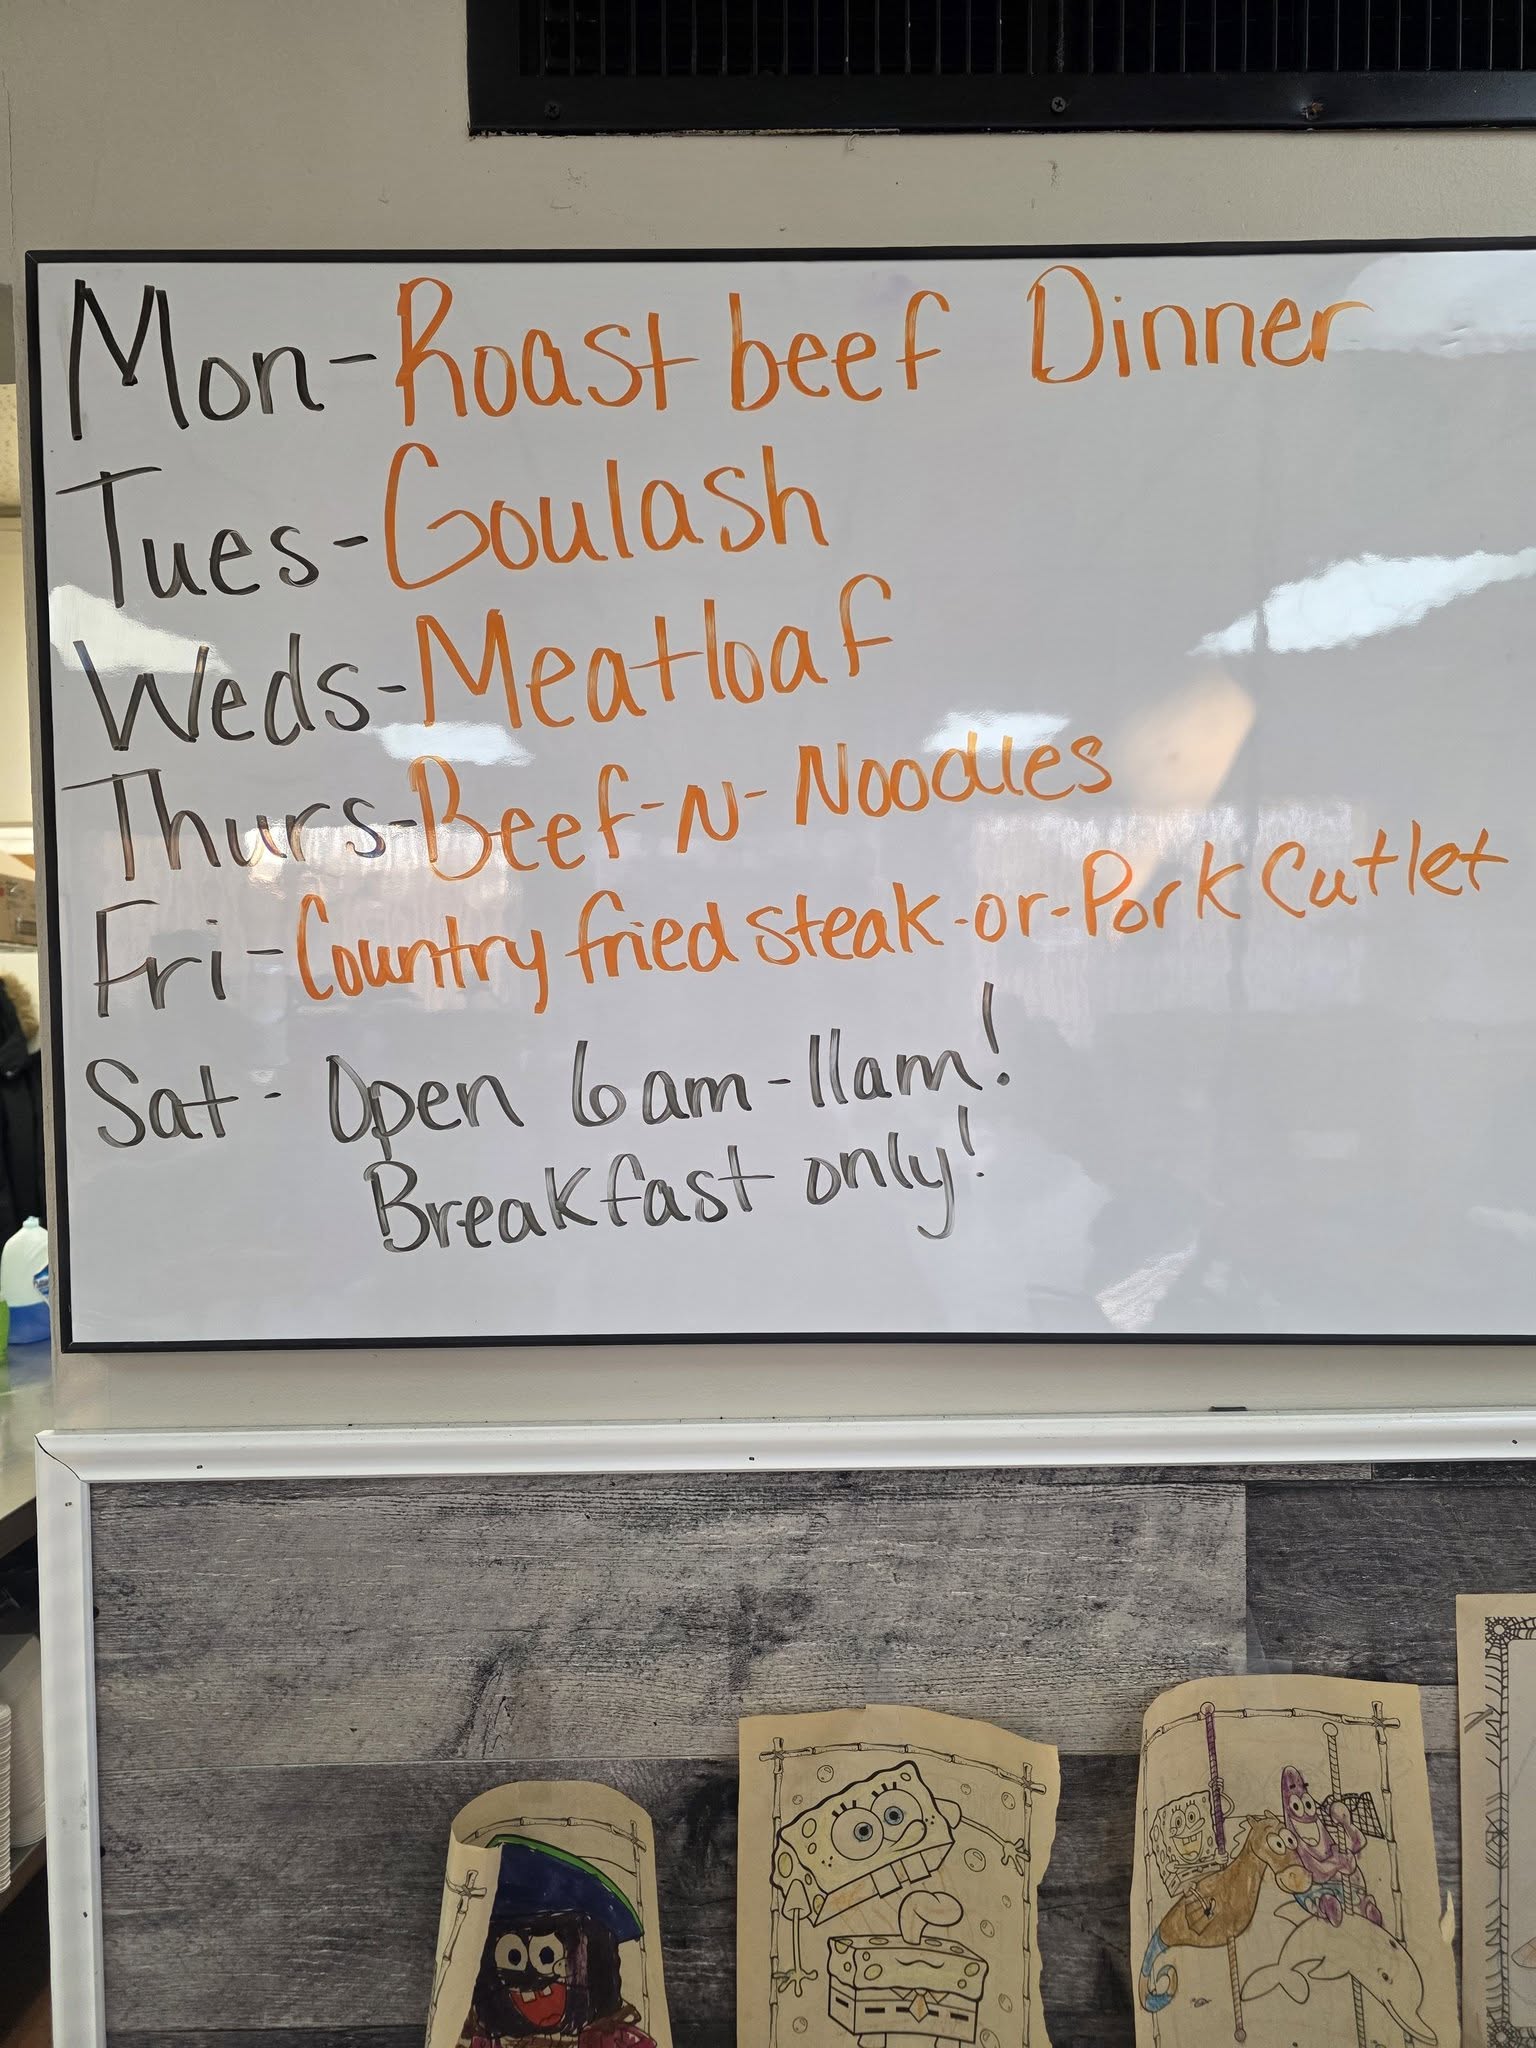 Mon-Roast beef Dinner
Tues-Goulash
Weds-Meatloaf
Thurs-Beef-N-Noodles
Fri-Country fried steak-or-Pork Cutlet
Sat- Open 6am-11am!
Breakfast only!